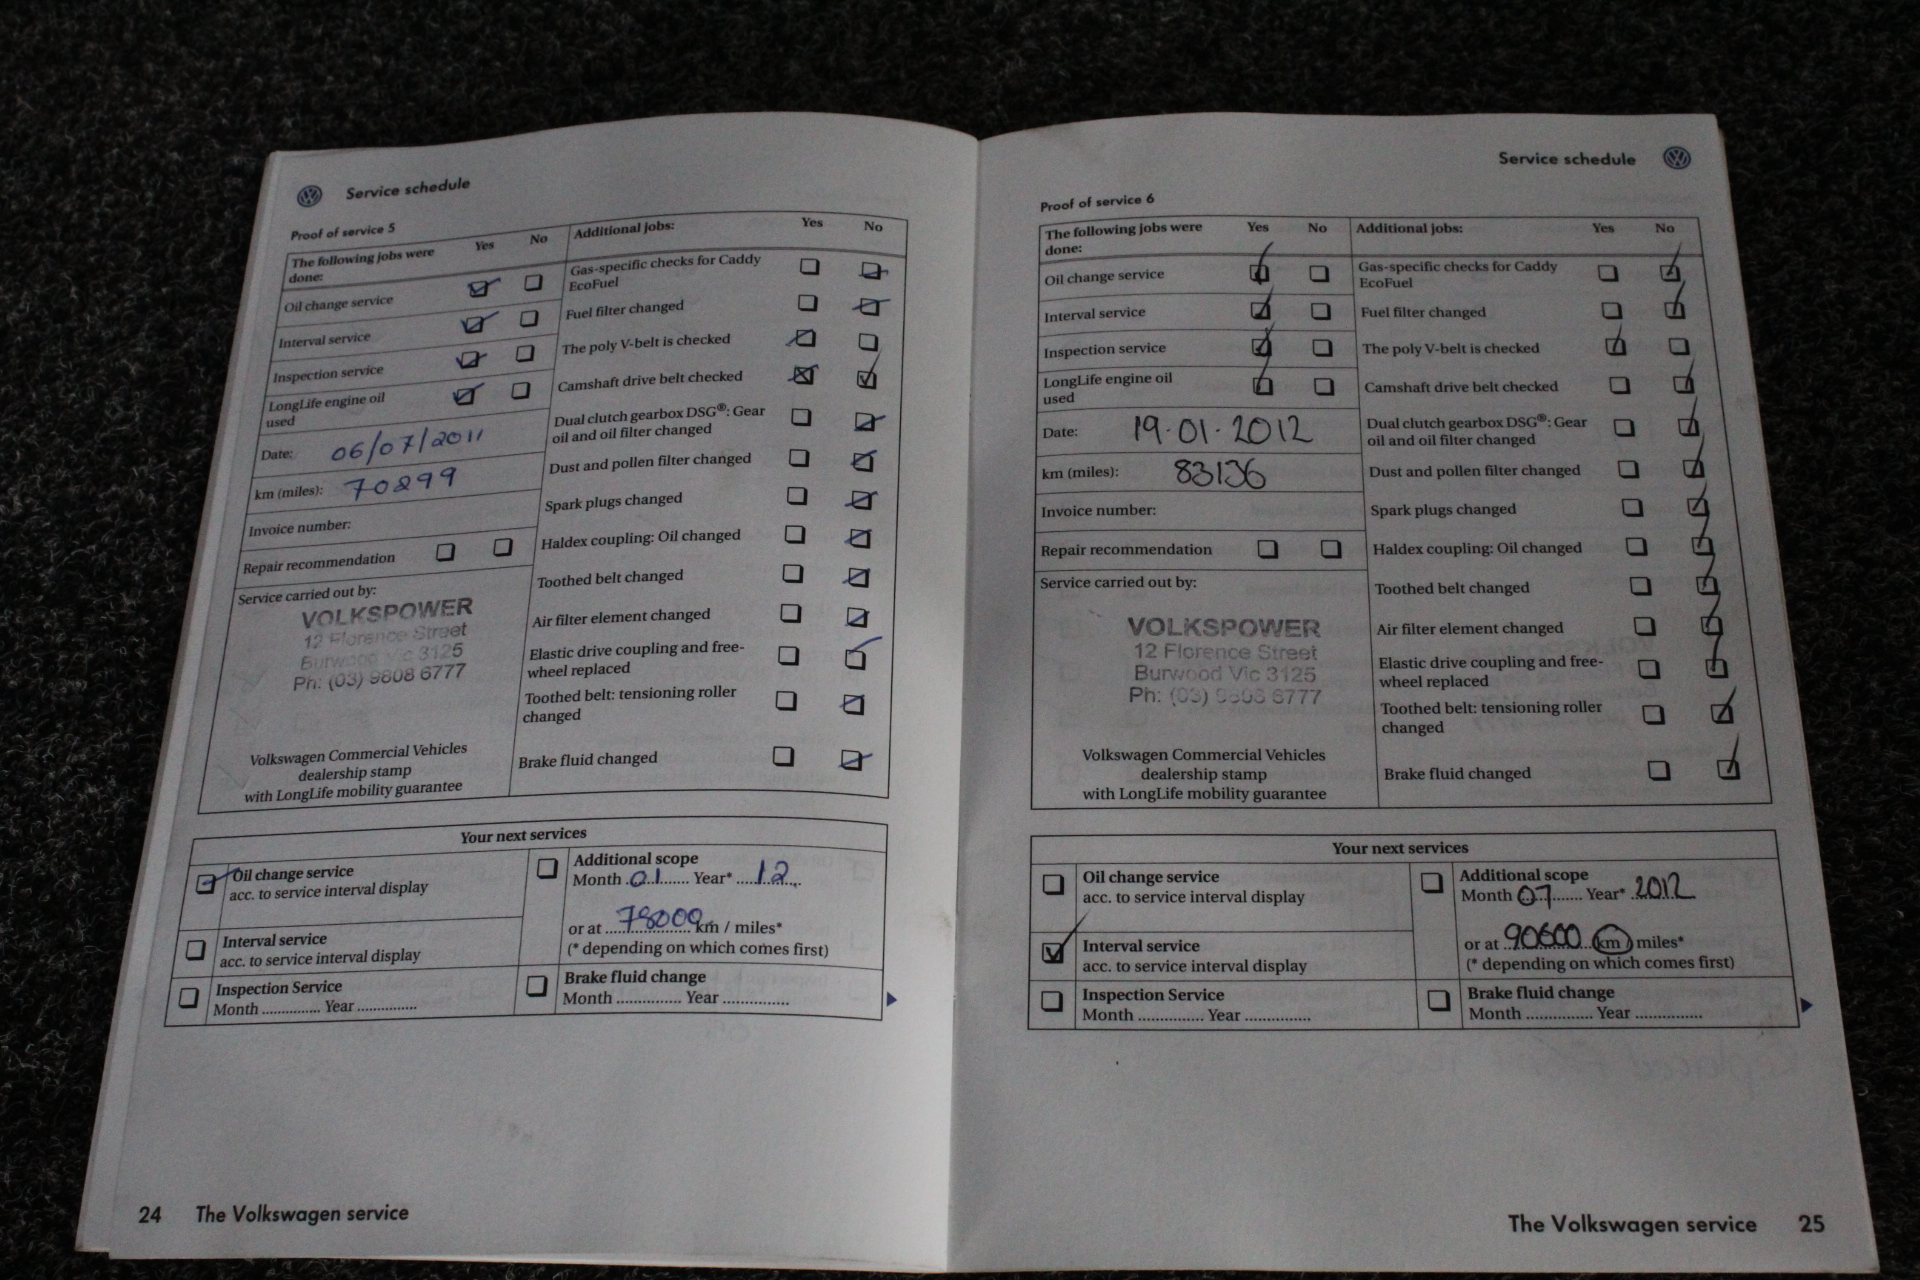 Service schedule
Proof of service 5
The following jobs were done: Yes No
Oil change service
Interval service
Inspection service
LongLife engine oil used
Date: 06/07/2011
km (miles): 70899
Invoice number:
Repair recommendation
Service carried out by:
VOLKSPOWER
12 Florence Street
Burwood Vic 3125
Ph: (03) 9808 6777
Volkswagen Commercial Vehicles
dealership stamp
with LongLife mobility guarantee
Additional jobs: Yes No
Gas-specific checks for Caddy
EcoFuel
Fuel filter changed
The poly V-belt is checked
Camshaft drive belt checked
Dual clutch gearbox DSG®: Gear
oil and oil filter changed
Dust and pollen filter changed
Spark plugs changed
Haldex coupling: Oil changed
Toothed belt changed
Air filter element changed
Elastic drive coupling and free-
wheel replaced
Toothed belt: tensioning roller
changed
Brake fluid changed
Your next services
Oil change service
acc. to service interval display
Interval service
acc. to service interval display
Inspection Service
Month .............. Year ..............
Additional scope
Month 01 Year* 12
or at 78000 km / miles*
(* depending on which comes first)
Brake fluid change
Month .............. Year ..............
24 The Volkswagen service
Service schedule
Proof of service 6
The following jobs were done: Yes No
Oil change service
Interval service
Inspection service
LongLife engine oil
used
Date: 19.01.2012
km (miles): 83136
Invoice number:
Repair recommendation
Service carried out by:
VOLKSPOWER
12 Florence Street
Burwood Vic 3125
Ph: (03) 9808 6777
Volkswagen Commercial Vehicles
dealership stamp
with LongLife mobility guarantee
Additional jobs: Yes No
Gas-specific checks for Caddy
EcoFuel
Fuel filter changed
The poly V-belt is checked
Camshaft drive belt checked
Dual clutch gearbox DSG®: Gear
oil and oil filter changed
Dust and pollen filter changed
Spark plugs changed
Haldex coupling: Oil changed
Toothed belt changed
Air filter element changed
Elastic drive coupling and free-
wheel replaced
Toothed belt: tensioning roller
changed
Brake fluid changed
Your next services
Oil change service
acc. to service interval display
Interval service
acc. to service interval display
Inspection Service
Month .............. Year ..............
Additional scope
Month 07 Year* 2012
or at 90600 km / miles*
(* depending on which comes first)
Brake fluid change
Month .............. Year ..............
The Volkswagen service 25